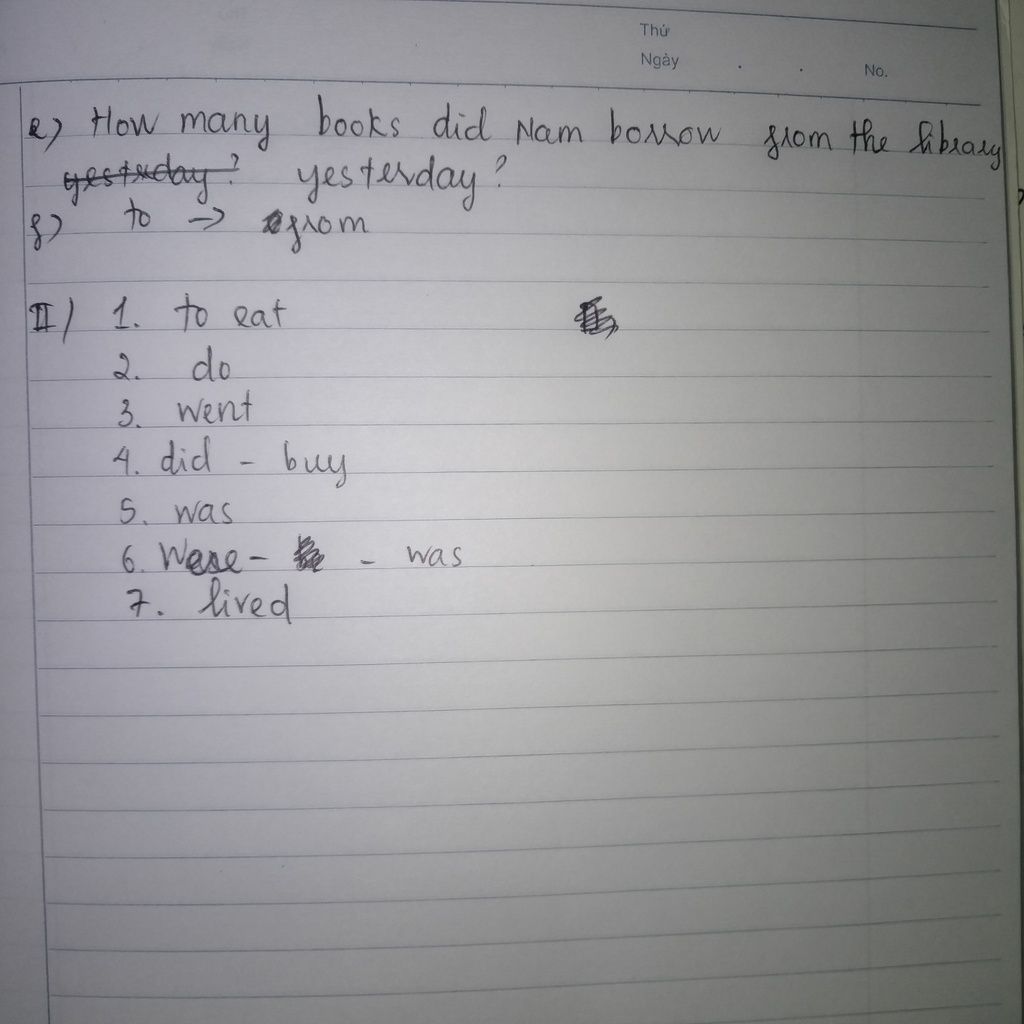 Thứ
Ngày . . No.
e) How many books did Nam borrow from the library
yesterday? yesterday?
f) to → from
II) 1. to eat
2. do
3. went
4. did - buy
5. was
6. Were - - was
7. lived